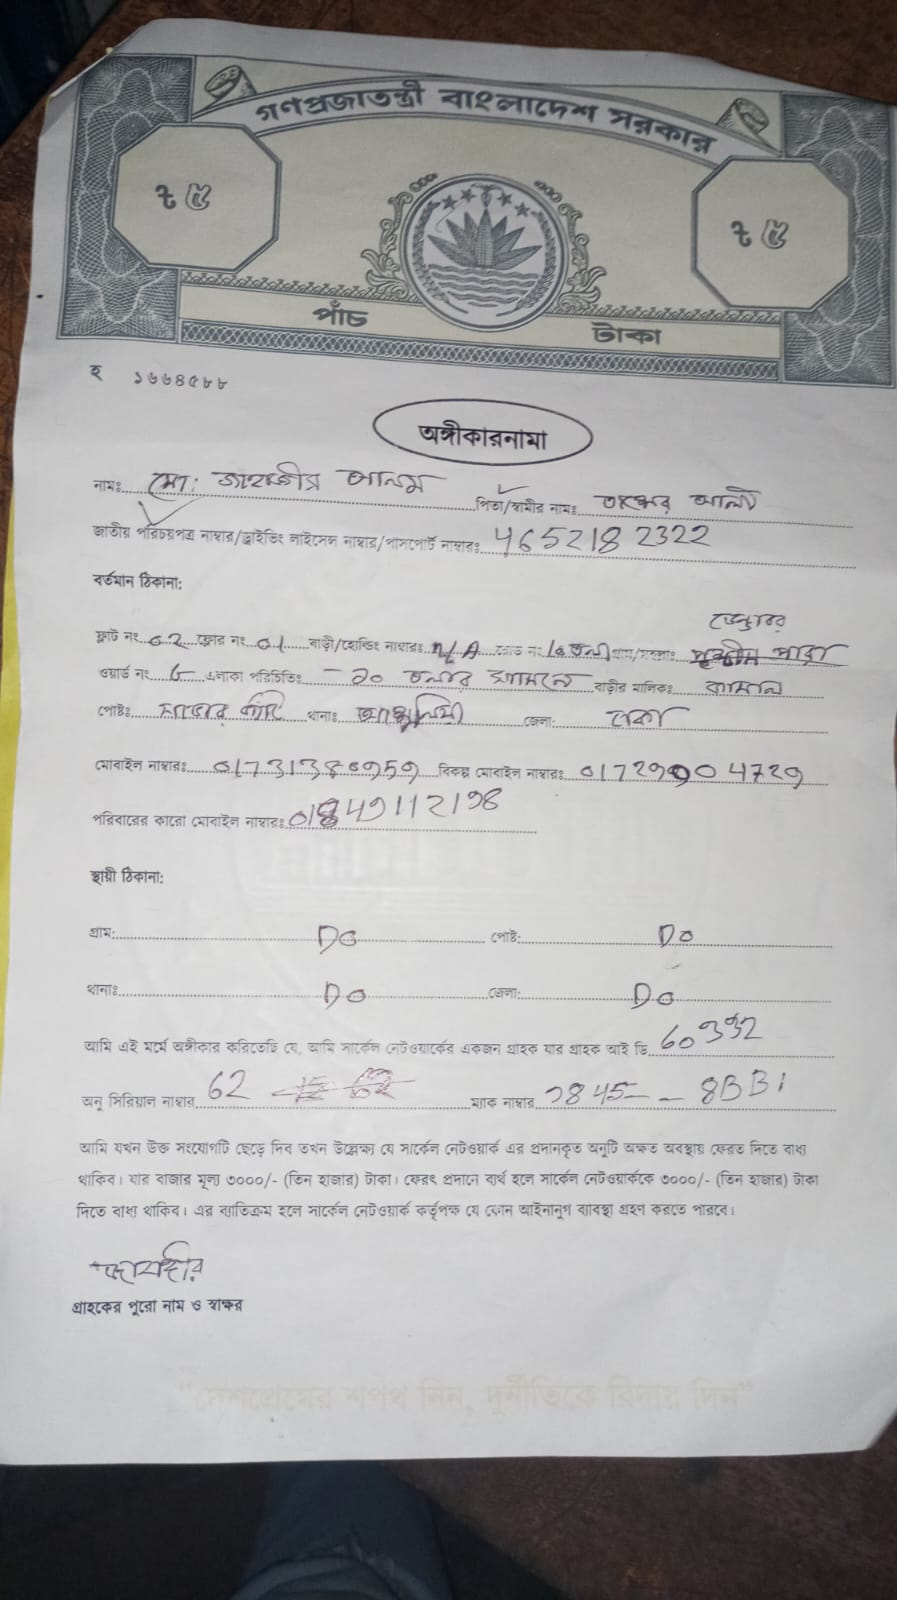 গণপ্রজাতন্ত্রী বাংলাদেশ সরকার
৳ ৫ ৳ ৫
পাঁচ টাকা
হ ১৬৬৪৫৮৮
অঙ্গীকারনামা
নামঃ মো: জাহাঙ্গীর আলম পিতা/স্বামীর নামঃ আলী
জাতীয় পরিচয়পত্র নাম্বার/ড্রাইভিং লাইসেন্স নাম্বার/পাসপোর্ট নাম্বারঃ 4652182322
বর্তমান ঠিকানা:
ফ্লাট নং ০২ ফ্লোর নং ০১ বাড়ী/হোল্ডিং নাম্বারঃ N/A রোড নং গ্রাম/মহল্লাঃ পাড়া
ওয়ার্ড নং এলাকা পরিচিতিঃ - ১০ তলার সামনে বাড়ীর মালিকঃ কামাল
পোষ্টঃ সাভার থানাঃ আশুলিয়া জেলা: ঢাকা
মোবাইল নাম্বারঃ বিকল্প মোবাইল নাম্বারঃ
পরিবারের কারো মোবাইল নাম্বারঃ
স্থায়ী ঠিকানা:
গ্রাম: DO পোষ্ট: DO
থানাঃ DO জেলা: DO
আমি এই মর্মে অঙ্গীকার করিতেছি যে, আমি সার্কেল নেটওয়ার্কের একজন গ্রাহক যার গ্রাহক আই ডি
অনু সিরিয়াল নাম্বার 62 ম্যাক নাম্বার
আমি যখন উক্ত সংযোগটি ছেড়ে দিব তখন উল্লেক্ষ্য যে সার্কেল নেটওয়ার্ক এর প্রদানকৃত অনুটি অক্ষত অবস্থায় ফেরত দিতে বাধ্য
থাকিব। যার বাজার মূল্য ৩০০০/- (তিন হাজার) টাকা। ফেরৎ প্রদানে ব্যর্থ হলে সার্কেল নেটওয়ার্ককে ৩০০০/- (তিন হাজার) টাকা
দিতে বাধ্য থাকিব। এর ব্যতিক্রম হলে সার্কেল নেটওয়ার্ক কর্তৃপক্ষ যে কোন আইনানুগ ব্যাবস্থা গ্রহণ করতে পারবে।
জাহাঙ্গীর
গ্রাহকের পুরো নাম ও স্বাক্ষর
"দেশপ্রেমের শপথ নিন, দুর্নীতিকে বিদায় দিন"